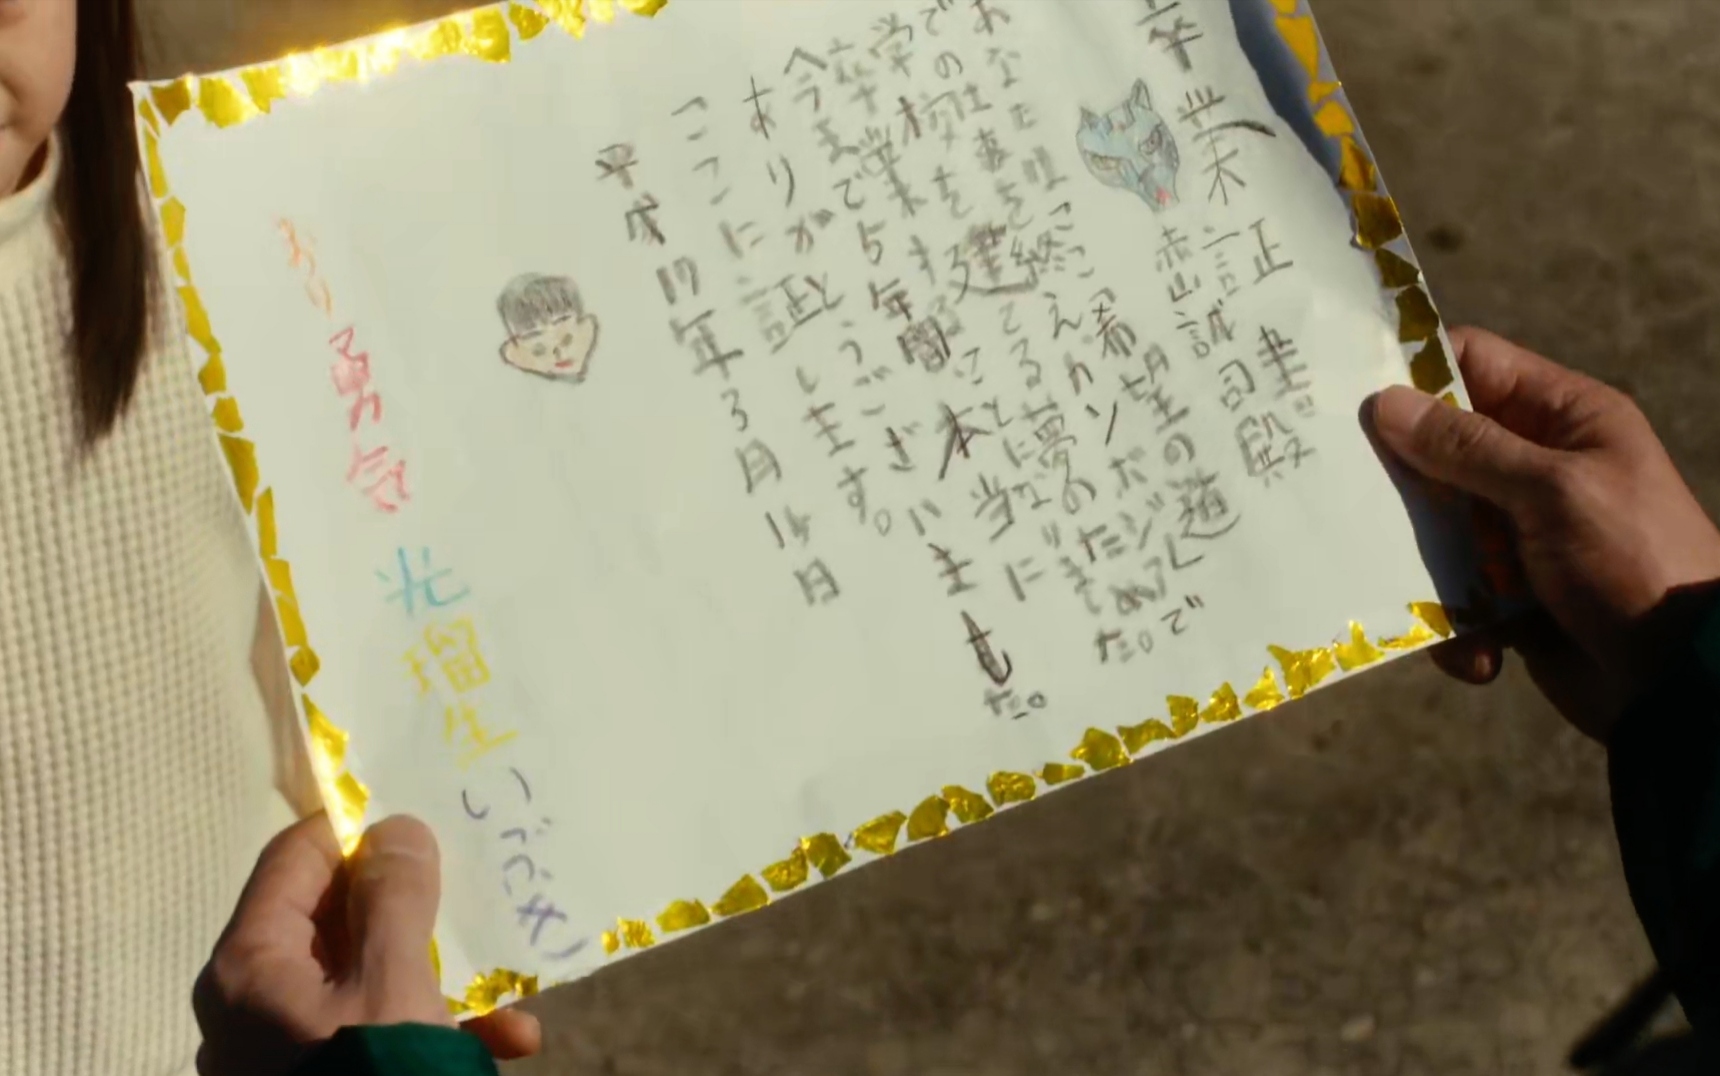 卒業証書
赤山誠司殿
あなたはここ「希望の道」
での仕事を終えカンボジ
学校を建てる夢のため
卒業することになりました。
今まで5年間本当に
ありがとうございました。
ここに証とします。
平成17年3月14日
より 勇気 光 瑠生 いぶき